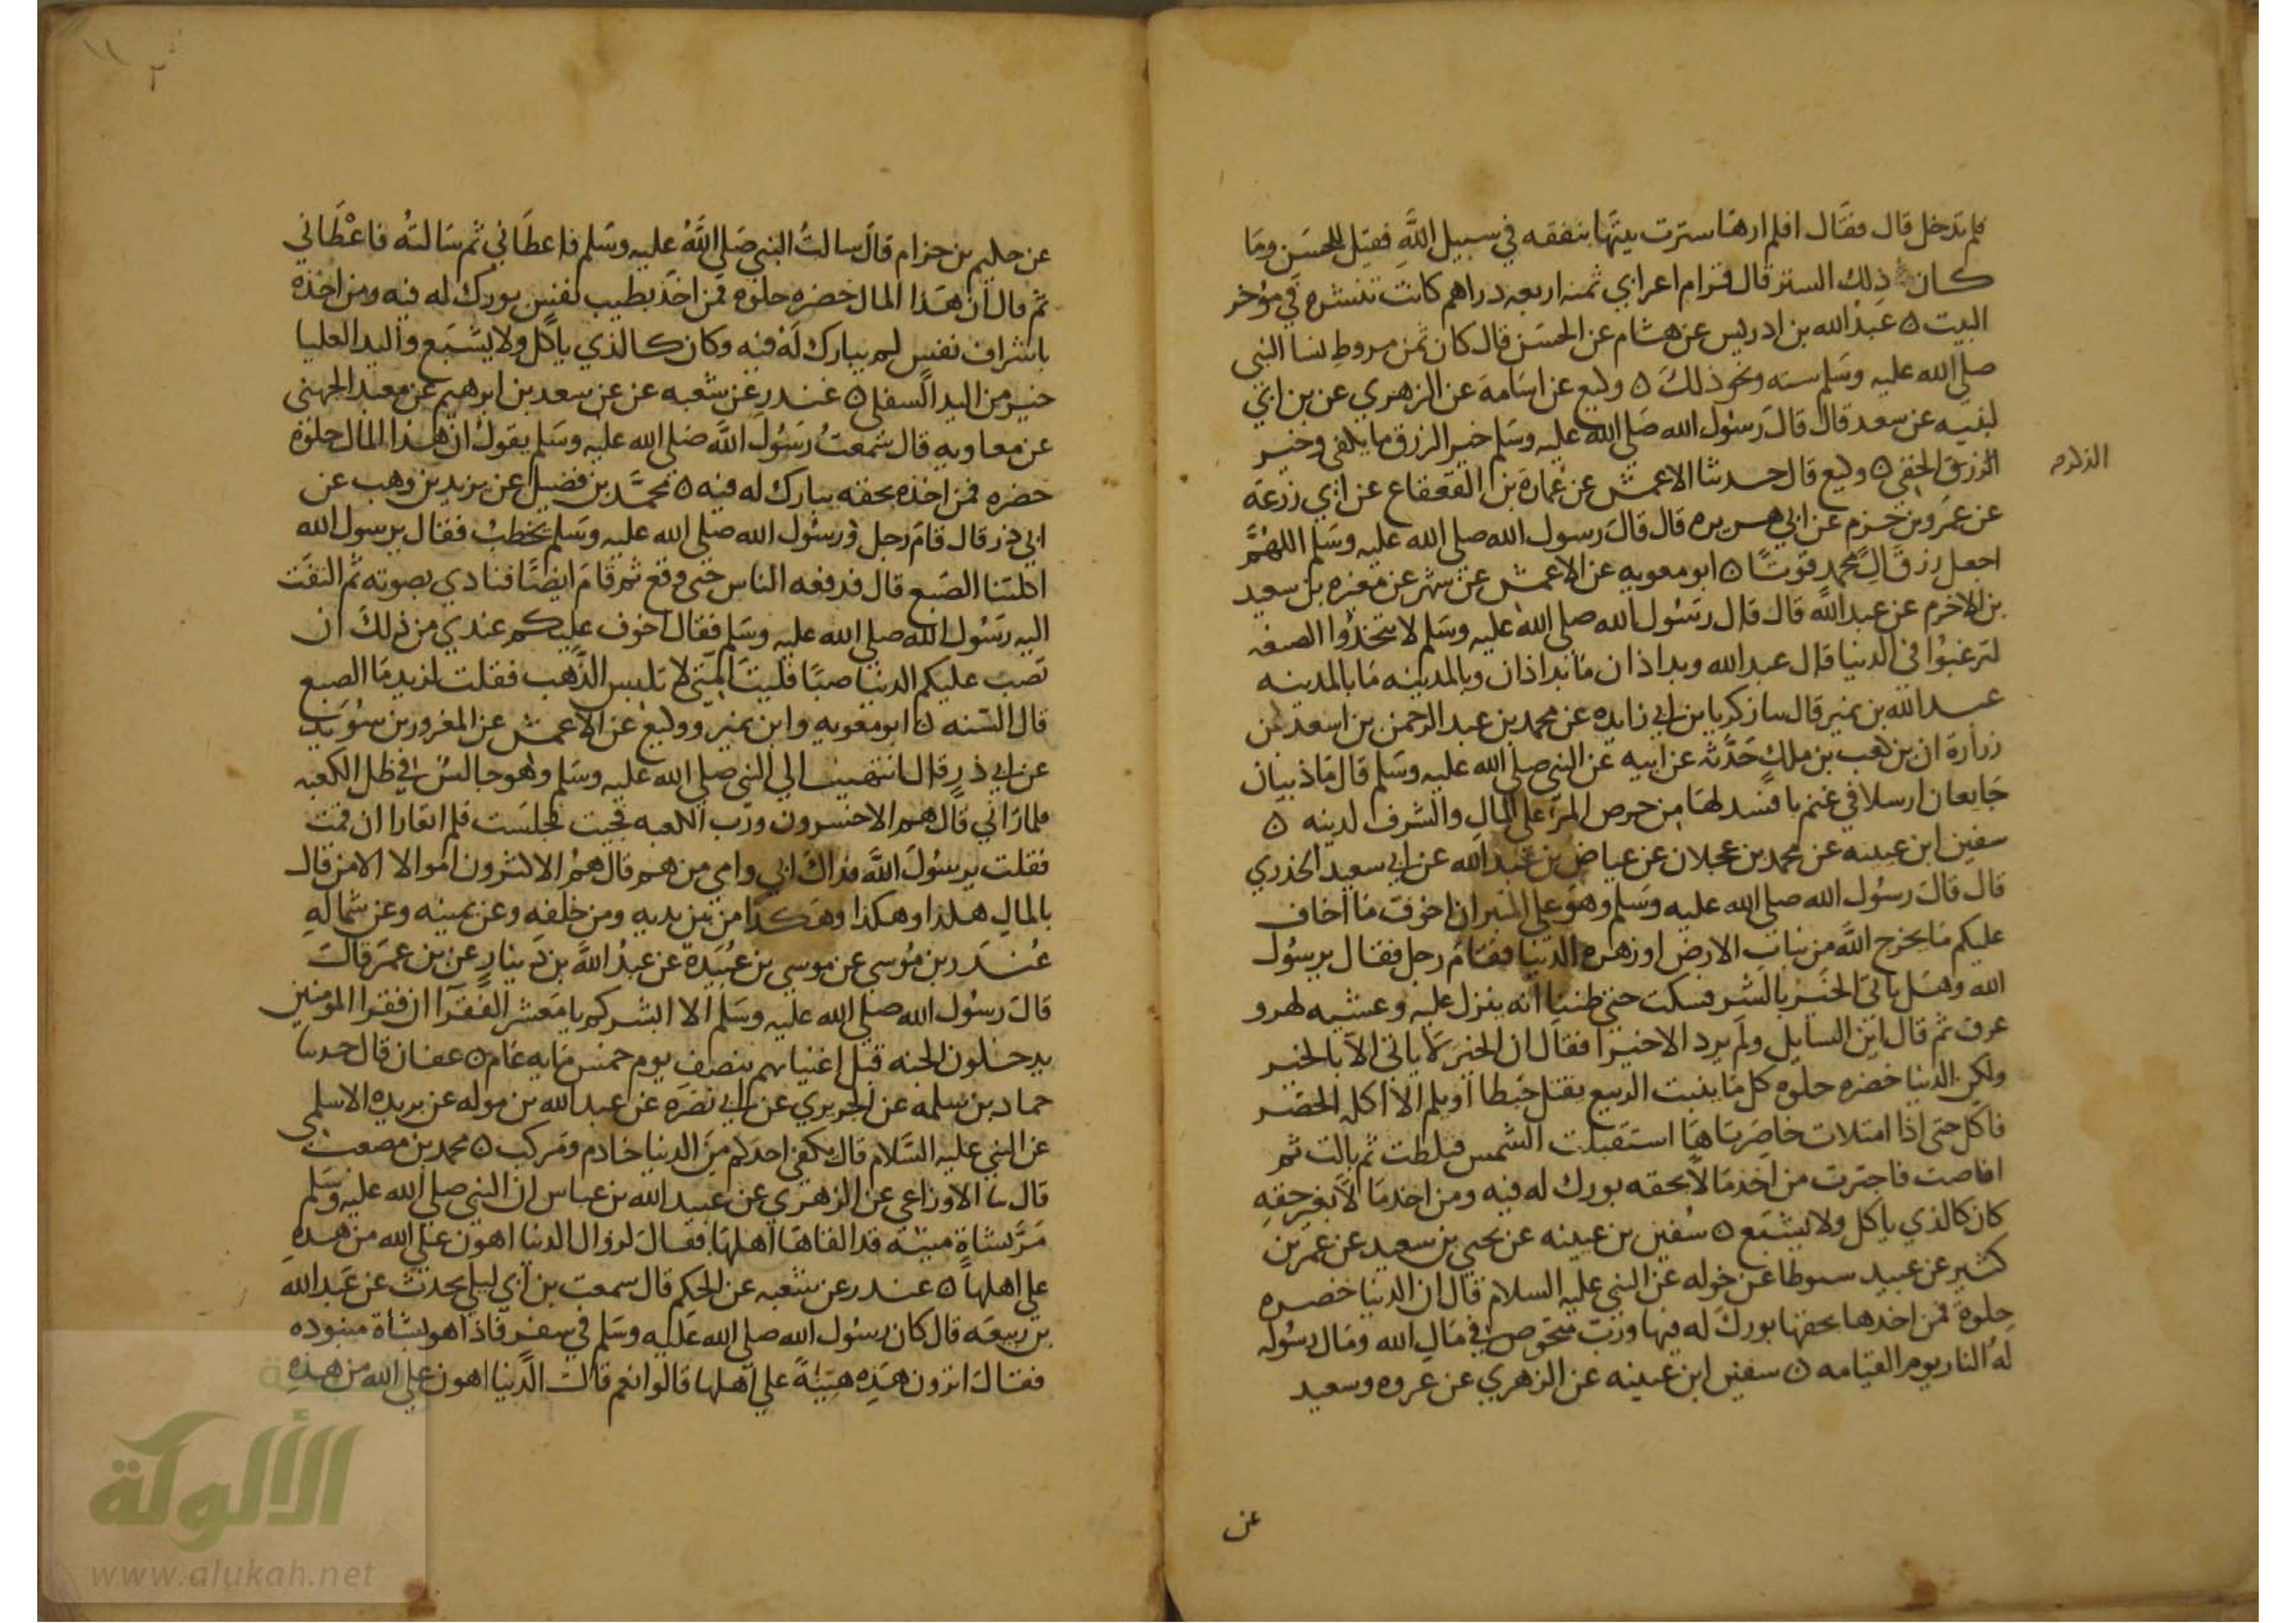 فلم تدخل قال فقال افلم ارها سترت بيتها بنفقه في سبيل الله فقيل للحسن وما
كان ذلك الستر قال قرام اعرابي ثمنه اربعه دراهم كانت تنشره في مؤخر
البيت ٥ عبد الله بن ادريس عن هشام عن الحسن قال كان ثمن مروط نسا النبي
صلى الله عليه وسلم سته ونحو ذلك ٥ وكيع عن اسامة عن الزهري عن بن ابي
لبيبه عن سعد قال قال رسول الله صلى الله عليه وسلم خير الرزق ما يكفي وخير
الرزق الخفي ٥ وكيع قال حدثنا الاعمش عن عمارة بن القعقاع عن ابي زرعة
عن عمرو بن حزم عن ابي هريره قال قال رسول الله صلى الله عليه وسلم اللهم
اجعل رزق ال محمد قوتا ٥ ابو معويه عن الاعمش عن شمر عن مغره بن سعيد
بن الاخرم عن عبد الله قال قال رسول الله صلى الله عليه وسلم لا تتخذوا الضيعه
لترغبوا في الدنيا قال عبد الله وبراذان ما براذان وبالمدينه ما بالمدينه
عبد الله بن نمير قال سا زكريا بن ابي زايده عن محمد بن عبد الرحمن بن اسعد بن
زرارة ان بن كعب بن ملك حدثه عن ابيه عن النبي صلى الله عليه وسلم قال ما ذيبان
جايعان ارسلا في غنم بافسد لها من حرص المرء على المال والشرف لدينه ٥
سفين ابن عيينه عن محمد بن عجلان عن عياض بن عبد الله عن ابي سعيد الخدري
قال قال رسول الله صلى الله عليه وسلم وهو على المنبر ان اخوف ما اخاف
عليكم ما يخرج الله من نبات الارض او زهره الدنيا فقام رجل فقال يرسول
الله وهل ياتي الخير بالشر فسكت حتى ظننا انه ينزل عليه وغشيه بهر و
عرق ثم قال اين السايل ولم يرد الا خيرا فقال ان الخير لا ياتي الا بالخير
ولكن الدنيا خضره حلوه كل ما ينبت الربيع يقتل حبطا او يلم الا اكله الخضر
فاكل حتى اذا امتلات خاصرتاها استقبلت الشمس فبلطت ثم بالت ثم
افاضت فاجترت من اخذ مالا بحقه بورك له فيه ومن اخذ مالا بغير حقه
كان كالذي ياكل ولا يشبع ٥ سفين بن عيينه عن يحيى بن سعيد عن عمر بن
كثير عن عبيد سنوطا عن خوله عن النبي عليه السلام قال ان الدنيا خضره
حلوة فمن اخذها بحقها بورك له فيها ورب متخوض في مال الله ومال رسوله
له النار يوم القيامه ٥ سفين ابن عيينه عن الزهري عن عروه وسعيد
عن
٢
عن حكيم بن حزام قال سالت النبي صلى الله عليه وسلم فاعطاني ثم سالته فاعطاني
ثم قال ان هذا المال خضره حلوه فمن اخذ بطيب نفس بورك له فيه ومن اخذه
باشراف نفس لم يبارك له فيه وكان كالذي ياكل ولا يشبع واليد العليا
خير من اليد السفلى ٥ غندر عن شعبه عن عن سعد بن ابرهيم عن معبد الجهني
عن معاويه قال سمعت رسول الله صلى الله عليه وسلم يقول ان هذا المال حلوة
خضره فمن اخذه بحقه يبارك له فيه ٥ محمد بن فضيل عن يزيد بن وهب عن
ابي ذر قال قام رجل ورسول الله صلى الله عليه وسلم يخطب فقال يرسول الله
اكلتنا الضبع قال فدفعه الناس حتى وقع ثم قام ايضا فنادي بصوته ثم التفت
اليه رسول الله صلى الله عليه وسلم فقال اخوف عليكم عندي من ذلك ان
تصب عليكم الدنيا صبا فليت امتي لا تلبس الذهب فقلت لزيد ما الضبع
قال السنه ٥ ابو معويه وابن نمير ووكيع عن الاعمش عن المغرور بن سويد
عن ابي ذر قال انتهيت الي النبي صلى الله عليه وسلم وهو جالس في ظل الكعبه
فلما راني قال هم الاخسرون ورب الكعبه فجيت فجلست فلم اتقارا ان قمت
فقلت يرسول الله فداك ابي وامي من هم قال هم الاكثرون اموالا الا من قال
بالمال هكذا وهكذا وهكذا من بين يديه ومن خلفه وعن يمينه وعن شماله
غندر بن موسي عن موسي بن عبيدة عن عبد الله بن دينار عن بن عمر قال
قال رسول الله صلى الله عليه وسلم الا ابشركم يا معشر الفقرآ ان فقرا المؤمنين
يدخلون الجنه قبل اغنيايهم بنصف يوم خمس مايه عام ٥ عفان قال حدثنا
حماد بن سلمه عن الجريري عن ابي نضره عن عبد الله بن موله عن بريده الاسلمي
عن النبي عليه السلام قال يكفي احدكم من الدنيا خادم ومركب ٥ محمد بن مصعب
قال سا الاوزاعي عن الزهري عن عبيد الله بن عباس ان النبي صلى الله عليه وسلم
مر بشاة ميتة قد القاها اهلها فقال لزوال الدنيا اهون علي الله من هذه
علي اهلها ٥ غندر عن شعبه عن الحكم قال سمعت بن ابي ليلي يحدث عن عبد الله
بن ربيعه قال كان رسول الله صلى الله عليه وسلم في سفر فاذا هو بشاة منبوذه
فقال اترون هذه هينة علي اهلها قالوا نعم قال الدنيا اهون علي الله من هذه
الألوكة
www.alukah.net